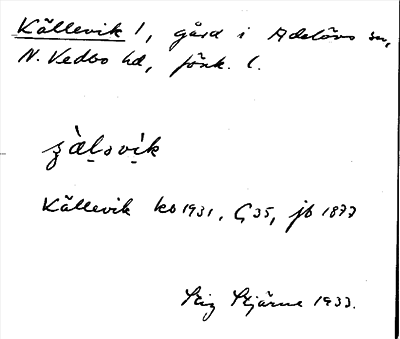 Källevik 1, gård i Adelövs sn,
N. Vedbo hd, Jönk. l.
Källevik ko 1931, G 35, jb 1877
Stig Stjärne 1933.